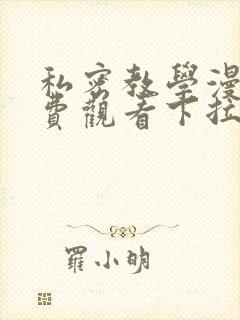 私密教學漫
費觀看下拉
羅小明